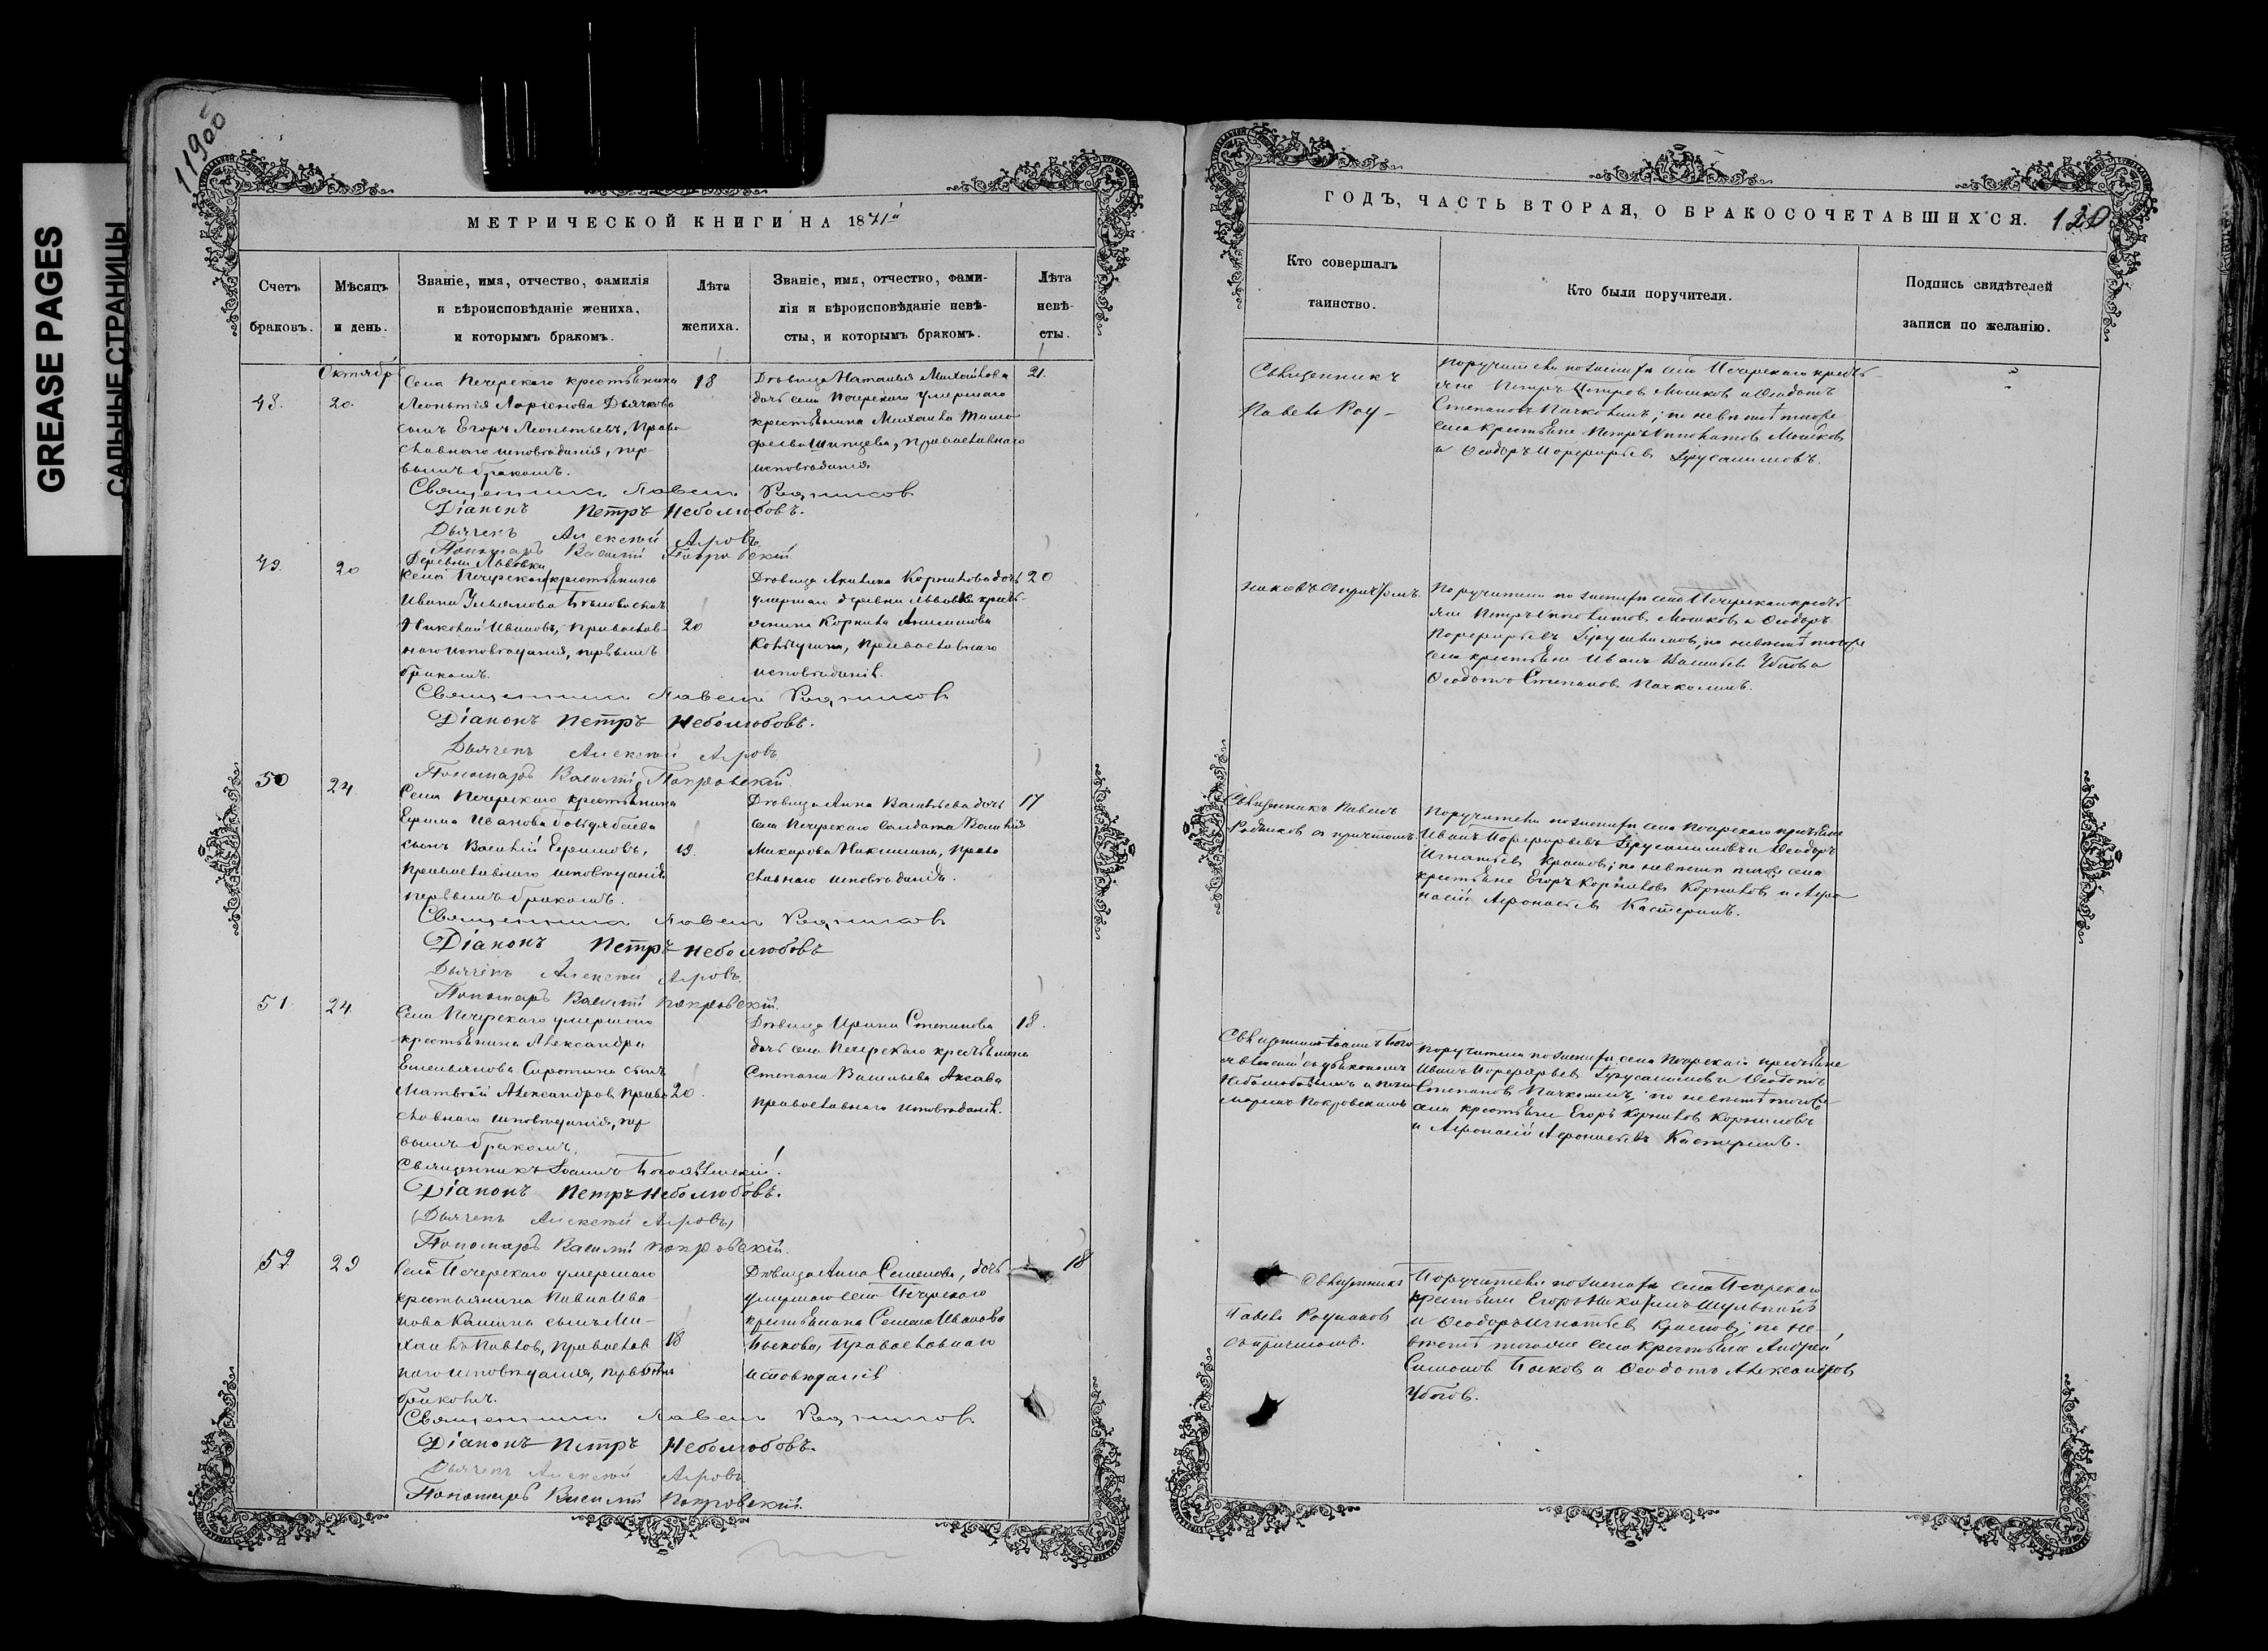 GREASE PAGES
САЛЬНЫЕ СТРАНИЦЫ
119об
МЕТРИЧЕСКОЙ КНИГИ НА 1871й
Счетъ браковъ.
Мѣсяцъ и день.
Званіе, имя, отчество, фамилія
и вѣроисповѣданіе жениха,
и которымъ бракомъ.
Лѣта жениха.
Званіе, имя, отчество, фами-
лія и вѣроисповѣданіе невѣ-
сты, и которымъ бракомъ.
Лѣта невѣ-
сты.
Октябр
48.
20.
Села Печерскаго крестьянина
Леонтія Ларіонова Дьячкова
сынъ Егоръ Леонтьевъ, Право
славнаго исповѣданія, пер-
вымъ бракомъ.
18
Дѣвица Наталья Михайлова
дочь села Печерскаго умершаго
крестьянина Михаила Тимо-
феева православнаго
исповѣданія
21.
Священникъ Павелъ Родниковъ
Діаконъ Петръ Неболюбовъ.
Дьячекъ Алексѣй Агровъ
Пономарь Василій Покровскій
49.
20
Деревни Львовки
села Печерскаго крестьянина
Ивана Ульянова сынъ
Николай Ивановъ, православ-
наго исповѣданія, первымъ
бракомъ.
20
Дѣвица Акилина Корнилова дочь
умершаго деревни Львовки кресть-
янина Корнила Анисимова
православнаго
исповѣданія.
20
Священникъ Павелъ Родниковъ
Діаконъ Петръ Неболюбовъ.
Дьячекъ Алексѣй Агровъ
Пономарь Василій Покровскій
50
24.
Села Печерскаго крестьянина
Ефима Иванова
сынъ Василій Ефимовъ,
православнаго исповѣданія
первымъ бракомъ.
19.
Дѣвица Анна Васильева дочь
села Печерскаго солдата Василія
Макарова Никишина, право
славнаго исповѣданія.
17
Священникъ Павелъ Родниковъ
Діаконъ Петръ Неболюбовъ
Дьячекъ Алексѣй Агровъ.
Пономарь Василій Покровскій.
51.
24
Села Печерскаго умершаго
крестьянина Александра
Емельянова Сиротина сынъ
Матвѣй Александровъ Право
славнаго исповѣданія, пер
вымъ бракомъ.
20.
Дѣвица Ирина Степанова
дочь села Печерскаго крестьянина
Степана Васильева Аксава
православнаго исповѣданія.
18.
Священникъ Іоаннъ Богоявленскій.
Діаконъ Петръ Неболюбовъ.
Дьячекъ Алексѣй Агровъ
Пономарь Василій Покровскій.
52
29
Села Печерскаго умершаго
крестьянина Павла Ива-
нова Калинина сынъ Ми-
хаилъ Павловъ, православ
наго исповѣданія, первымъ
бракомъ.
18
Дѣвица Анна Семенова, дочь
умершаго села Печерскаго
крестьянина Семена Иванова
Быкова, Православнаго
исповѣданія
18
Священникъ Павелъ Родниковъ
Діаконъ Петръ Неболюбовъ.
Дьячекъ Алексѣй Агровъ
Пономарь Василій Покровскій.
ГОДЪ, ЧАСТЬ ВТОРАЯ, О БРАКОСОЧЕТАВШИХСЯ.
120
Кто совершалъ
таинство.
Кто были поручители.
Подпись свидѣтелей
записи по желанію.
Священникъ
Павелъ Род-
поручители по женихѣ села Печерскаго кресть-
яне Петръ Петровъ Мошковъ и Ѳеодотъ
Степановъ Пачколинъ; по невѣстѣ тогоже
села крестьяне Петръ Ипполитовъ Мошковъ
и Ѳеодоръ Порфирьевъ Іерусалимовъ.
никовъ съ причтомъ.
Поручители по женихѣ села Печерскаго кресть-
яне Петръ Ипполитовъ Мошковъ и Ѳеодоръ
Порфирьевъ Іерусалимовъ, по невѣстѣ тогоже
села крестьяне Иванъ Васильевъ Убоговъ
Ѳеодотъ Степановъ Пачколинъ.
Священникъ Павелъ
Родниковъ съ причтомъ.
Поручители по женихѣ села Печерскаго крестьяне
Иванъ Порфирьевъ Іерусалимовъ и Ѳеодоръ
Игнатьевъ Красновъ; по невѣстѣ тогоже села
крестьяне Егоръ Корниловъ Корниловъ и Аѳа-
насій Аѳанасьевъ Кастеринъ.
Священникъ Іоаннъ Бого
явленскій съ діакономъ
Неболюбовымъ и поно
маремъ Покровскимъ
поручители по женихѣ села Печерскаго крестьяне
Иванъ Порфирьевъ Іерусалимовъ и Ѳеодотъ
Степановъ Пачколинъ, по невѣстѣ тогоже
села крестьяне Егоръ Корниловъ Корниловъ
и Аѳанасій Аѳанасьевъ Кастеринъ.
Священникъ
Павелъ Родниковъ
съ причтомъ.
Поручители по женихѣ села Печерскаго
крестьяне Егоръ
и Ѳеодоръ Игнатьевъ Красновъ; по не-
вѣстѣ тогоже села крестьяне Андрей
Симоновъ Быковъ и Ѳеодотъ Александровъ
Убоговъ.